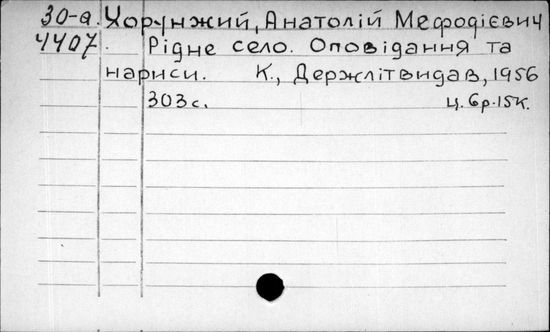 30-а. Хорунжий, Анатолій Мефодієвич
4407. Рідне село. Оповідання та
нариси. К., Держлітвидав, 1956
303с. ц. 6р.15к.